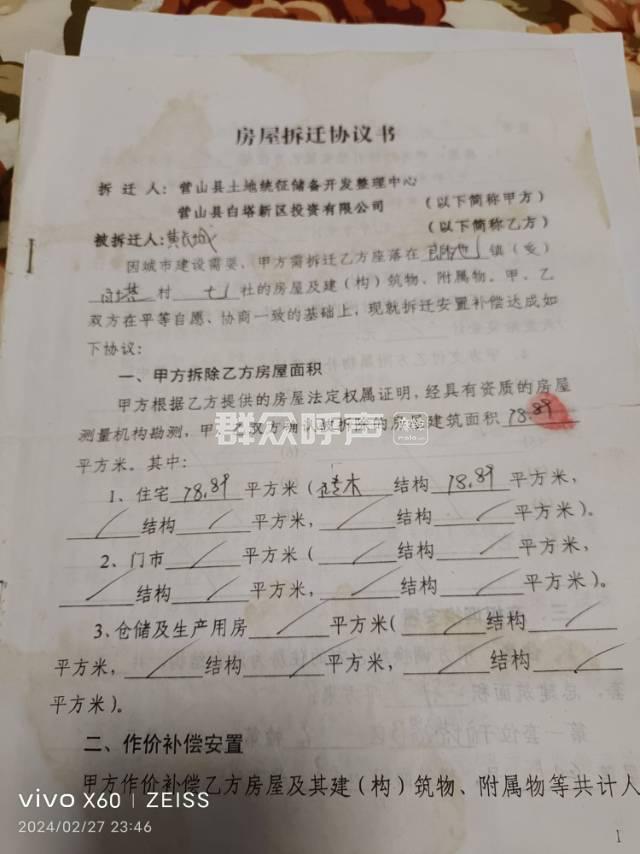 房屋拆迁协议书
拆 迁 人：营山县土地统征储备开发整理中心
营山县白塔新区投资有限公司 （以下简称甲方）
被拆迁人： （以下简称乙方）
因城市建设需要，甲方需拆迁乙方座落在 朗池 镇（乡）
白塔 村 七 社的房屋及建（构）筑物、附属物。甲、乙
双方在平等自愿、协商一致的基础上，现就拆迁安置补偿达成如
下协议：
一、甲方拆除乙方房屋面积
甲方根据乙方提供的房屋法定权属证明，经具有资质的房屋
测量机构勘测，甲、乙双方确认被拆除的房屋建筑面积 78.89
平方米。其中：
1、住宅 78.89 平方米（ 砖木 结构 78.89 平方米，
/ 结构 / 平方米， / 结构 / 平方米）。
2、门市 / 平方米（ / 结构 / 平方米，
/ 结构 / 平方米， / 结构 / 平方米）。
3、仓储及生产用房 / 平方米（ / 结构 /
平方米， / 结构 / 平方米， / 结构 /
平方米）。
二、作价补偿安置
甲方作价补偿乙方房屋及其建（构）筑物、附属物等共计人
1
群众呼声
vivo X60 | ZEISS
2024/02/27 23:46